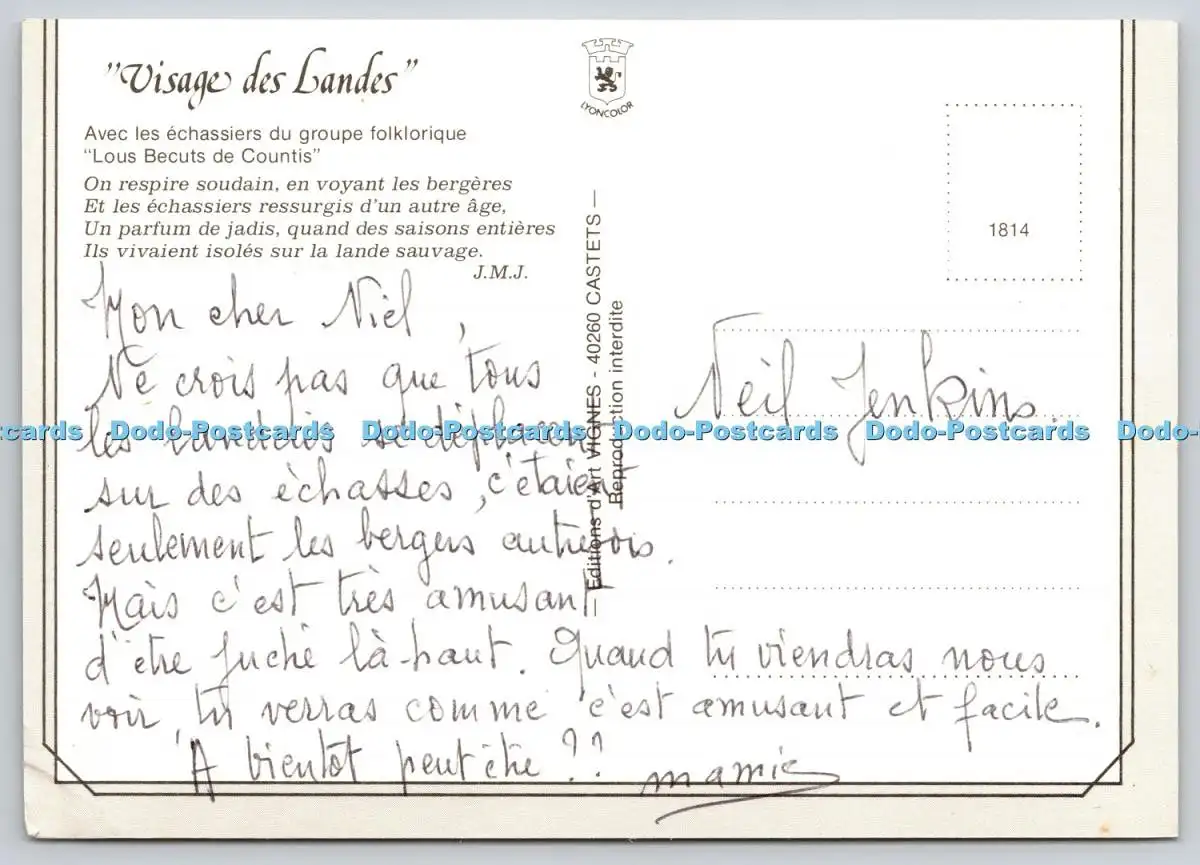 "Visage des Landes"
Avec les échassiers du groupe folklorique
"Lous Becuts de Countis"
On respire soudain, en voyant les bergères
Et les échassiers ressurgis d'un autre âge,
Un parfum de jadis, quand des saisons entières
Ils vivaient isolés sur la lande sauvage.
J.M.J.
Mon cher Niel,
Ne crois pas que tous
les landais se déplacent
sur des échasses, c'étaient
seulement les bergers autrefois.
Mais c'est très amusant
d'etre juché là-haut. Quand tu viendras nous
voir, tu verras comme c'est amusant et facile.
A bientôt peut être ??
mamie
LYONCOLOR
Editions d'Art VIGNES - 40260 CASTETS
Reproduction interdite
1814
Neil Jenkins.
Dodo-Postcards Dodo-Postcards Dodo-Postcards Dodo-Postcards